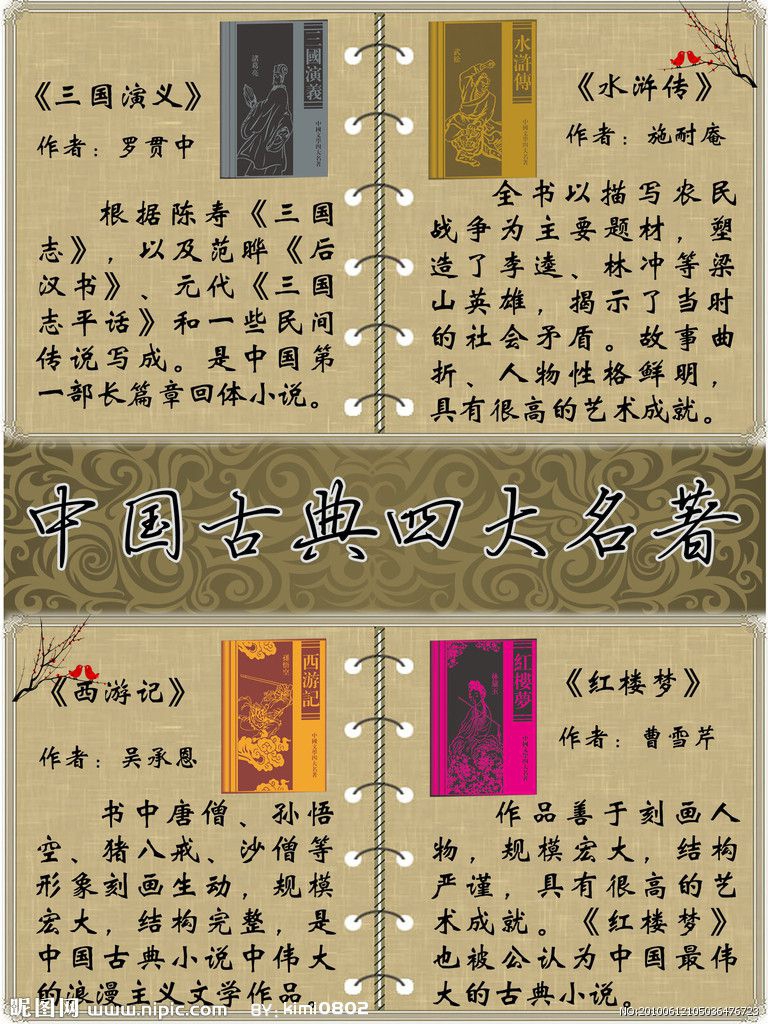 《三国演义》
作者：罗贯中
三國演義
諸葛亮
中國文學四大名著
根据陈寿《三国
志》，以及范晔《后
汉书》、元代《三国
志平话》和一些民间
传说写成。是中国第
一部长篇章回体小说。
水滸傳
武松
中國文學四大名著
《水浒传》
作者：施耐庵
全书以描写农民
战争为主要题材，塑
造了李逵、林冲等梁
山英雄，揭示了当时
的社会矛盾。故事曲
折、人物性格鲜明，
具有很高的艺术成就。
中国古典四大名著
《西游记》
作者：吴承恩
西游記
孫悟空
中國文學四大名著
书中唐僧、孙悟
空、猪八戒、沙僧等
形象刻画生动，规模
宏大，结构完整，是
中国古典小说中伟大
的浪漫主义文学作品。
紅樓夢
林黛玉
中國文學四大名著
《红楼梦》
作者：曹雪芹
作品善于刻画人
物，规模宏大，结构
严谨，具有很高的艺
术成就。《红楼梦》
也被公认为中国最伟
大的古典小说。
昵图网 www.nipic.com BY: kimi0802
NO:20100612105036476723